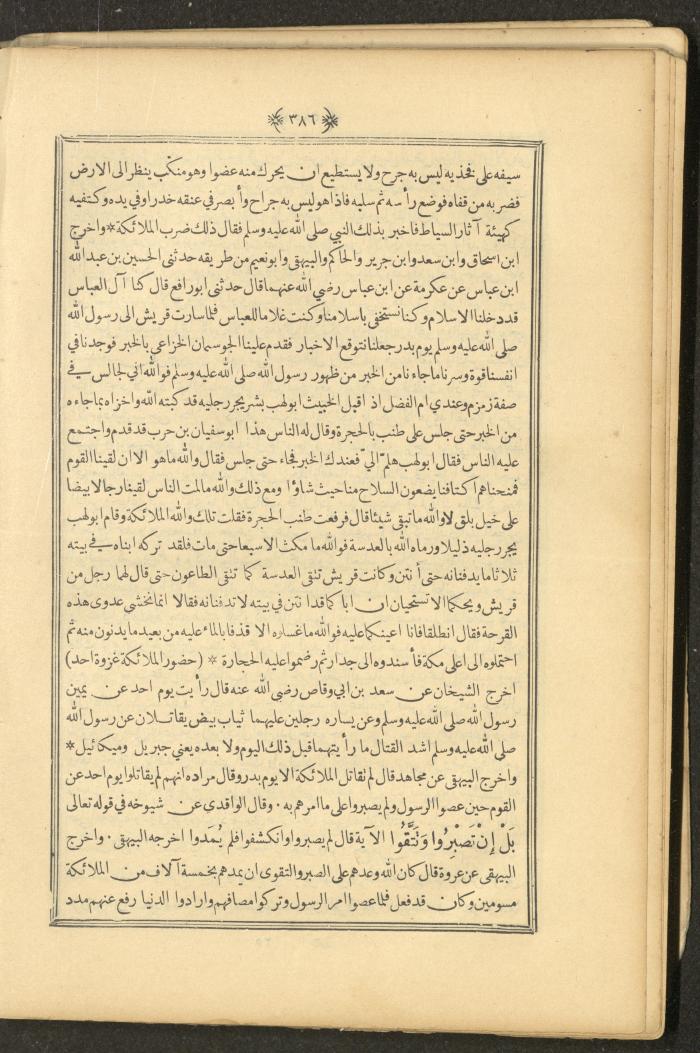 ٣٨٦
سيفه على فخذيه ليس به جرح ولا يستطيع ان يحرك منه عضوا وهو منكب ينظر الى الارض
فضربه من قفاه فوضع رأسه ثم سلبه فاذا هو ليس به جراح وأبصر في عنقه خدرا وفي يده وكتفيه
كهيئة آثار السياط فاخبر بذلك النبي صلى الله عليه وسلم فقال ذلك ضرب الملائكة * واخرج
ابن اسحاق وابن سعد وابن جرير والحاكم والبيهقي وابو نعيم من طريقه حدثني الحسين بن عبد الله
ابن عباس عن عكرمة عن ابن عباس رضي الله عنهما قال حدثني ابو رافع قال كنا آل العباس
قد دخلنا الاسلام وكنا نستخفي باسلامنا وكنت غلاما للعباس فلما سارت قريش الى رسول الله
صلى الله عليه وسلم يوم بدر جعلنا نتوقع الاخبار فقدم علينا الجوسمان الخزاعي بالخبر فوجدنا في
انفسنا قوة وسرنا ما جاءنا من الخبر من ظهور رسول الله صلى الله عليه وسلم فوالله اني لجالس في
صفة زمزم وعندي ام الفضل اذ اقبل الخبيث ابو لهب بشر يجر رجليه قد كبته الله واخزاه بما جاءه
من الخبر حتى جلس على طنب بالحجرة وقال له الناس هذا ابو سفيان بن حرب قد قدم واجتمع
عليه الناس فقال ابو لهب هلمّ اليّ فعندك الخبر فجاء حتى جلس فقال والله ما هو الا ان لقينا القوم
فمنحناهم اكتافنا يضعون السلاح منا حيث شاؤا ومع ذلك والله مالمت الناس لقينا رجالا بيضا
على خيل بلق لا والله ما تبقي شيئا قال فرفعت طنب الحجرة فقلت تلك والله الملائكة وقام ابو لهب
يجر رجليه ذليلا ورماه الله بالعدسة فوالله ما مكث الا سبعا حتى مات فلقد تركه ابناه في بيته
ثلاثا ما يدفنانه حتى أنتن وكانت قريش تتقي العدسة كما تتقي الطاعون حتى قال لهما رجل من
قريش ويحكما الا تستحيان ان ابا كما قد انتن في بيته لا تدفنانه فقالا انما نخشى عدوى هذه
القرحة فقال انطلقا فانا اعينكما عليه فوالله ما غسلوه الا قذفا بالماء عليه من بعيد ما يدنون منه ثم
احتملوه الى اعلى مكة فأسندوه الى جدار ثم رضموا عليه الحجارة * (حضور الملائكة غزوة احد)
اخرج الشيخان عن سعد بن ابي وقاص رضي الله عنه قال رأيت يوم احد عن يمين
رسول الله صلى الله عليه وسلم وعن يساره رجلين عليهما ثياب بيض يقاتلان عن رسول الله
صلى الله عليه وسلم اشد القتال ما رأيتهما قبل ذلك اليوم ولا بعده يعني جبريل وميكائيل *
واخرج البيهقي عن مجاهد قال لم تقاتل الملائكة الا يوم بدر وقال مراده انهم لم يقاتلوا يوم احد عن
القوم حين عصوا الرسول ولم يصبروا على ما امرهم به . وقال الواقدي عن شيوخه في قوله تعالى
بَلْ إِنْ تَصْبِرُوا وَتَتَّقُوا الآية قال لم يصبروا وانكشفوا فلم يُمَدوا اخرجه البيهقي . واخرج
البيهقي عن عروة قال كان الله وعدهم على الصبر والتقوى ان يمدهم بخمسة آلاف من الملائكة
مسومين وكان قد فعل فلما عصوا امر الرسول وتركوا مصافهم وارادوا الدنيا رفع عنهم مدد